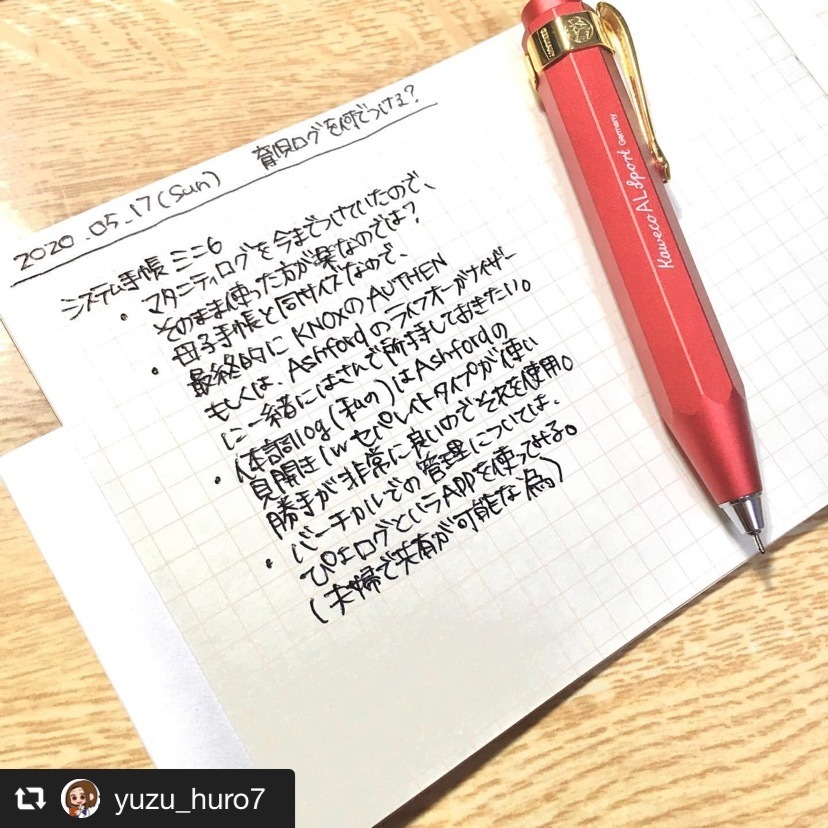 2020_05_17(Sun) 育児ログを何でつける?
システム手帳 ミニ6
・マタニティログを今までつけていたので、
そのまま使った方が楽なのでは?
・母子手帳と同サイズなので、
最終的に KNOXのAUTHEN
もしくは、Ashfordのライフオーガナイザー
に一緒にはさんで所持しておきたい。
・体調log(私の)はAshfordの
見開き1wセパレイトタイプが使い
勝手が非常に良いのでそれを使用。
・バーチカルでの管理については、
ぴよログというAPPを使ってみる。
(夫婦で共有が可能な為)
Kaweco AL Sport Germany
GERMANY
yuzu_huro7